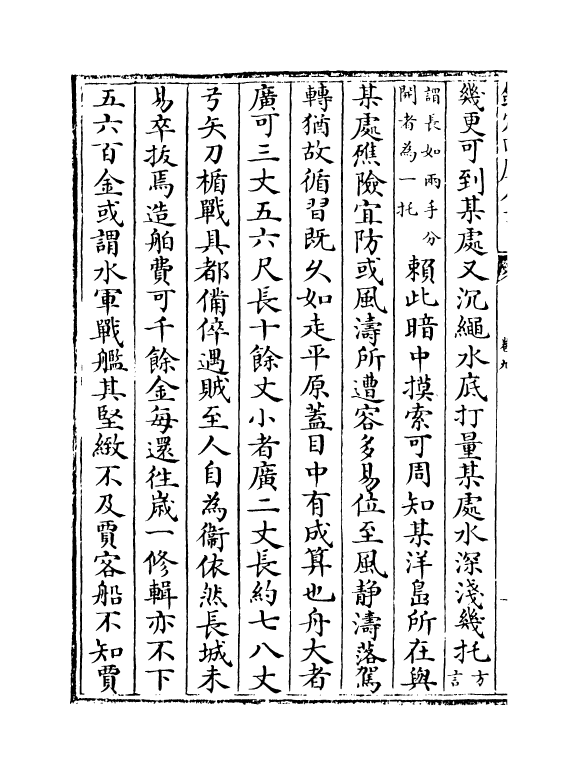 幾更可到某處又沉繩水底打量某處水深淺幾托方言
謂長如兩手分開者為一托賴此暗中摸索可周知某洋島所在與
某處礁險宜防或風濤所遭容多易位至風静濤落駕
轉猶故循習既久如走平原蓋目中有成算也舟大者
廣可三丈五六尺長十餘丈小者廣二丈長約七八丈
弓矢刀楯戰具都備倅遇賊至人自為衛依然長城未
易卒拔焉造舶費可千餘金每還往嵗一修輯亦不下
五六百金或謂水軍戰艦其堅緻不及賈客船不知賈